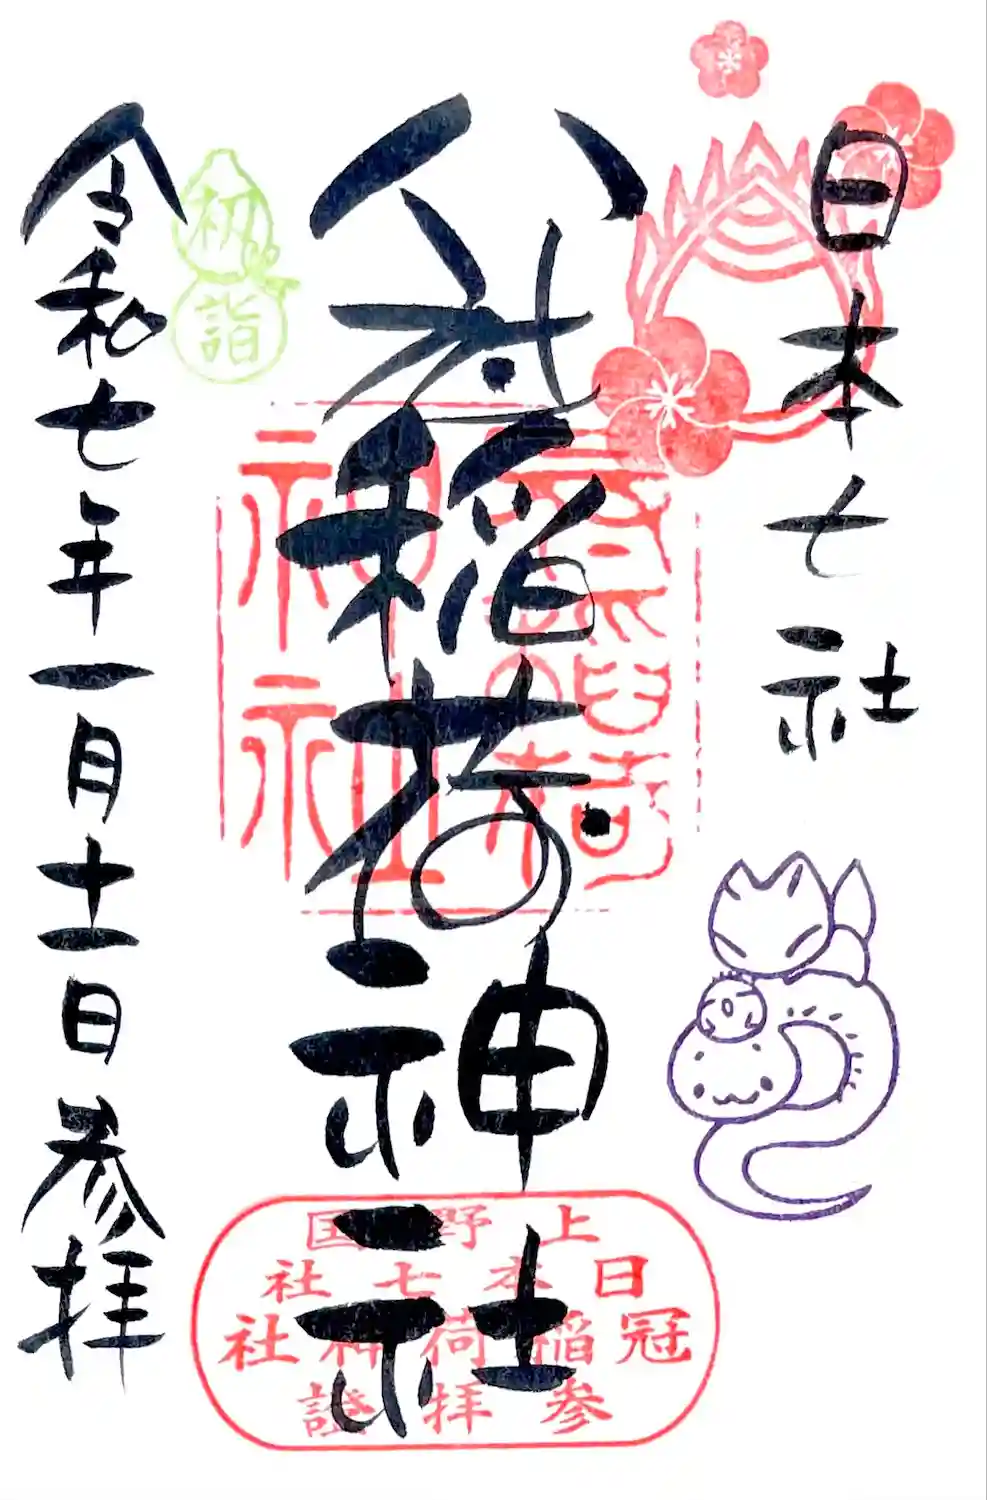 日本七社
冠稲荷神社
令和七年一月十一日参拝
初詣
上野国
日本七社
冠稲荷神社
参拝證